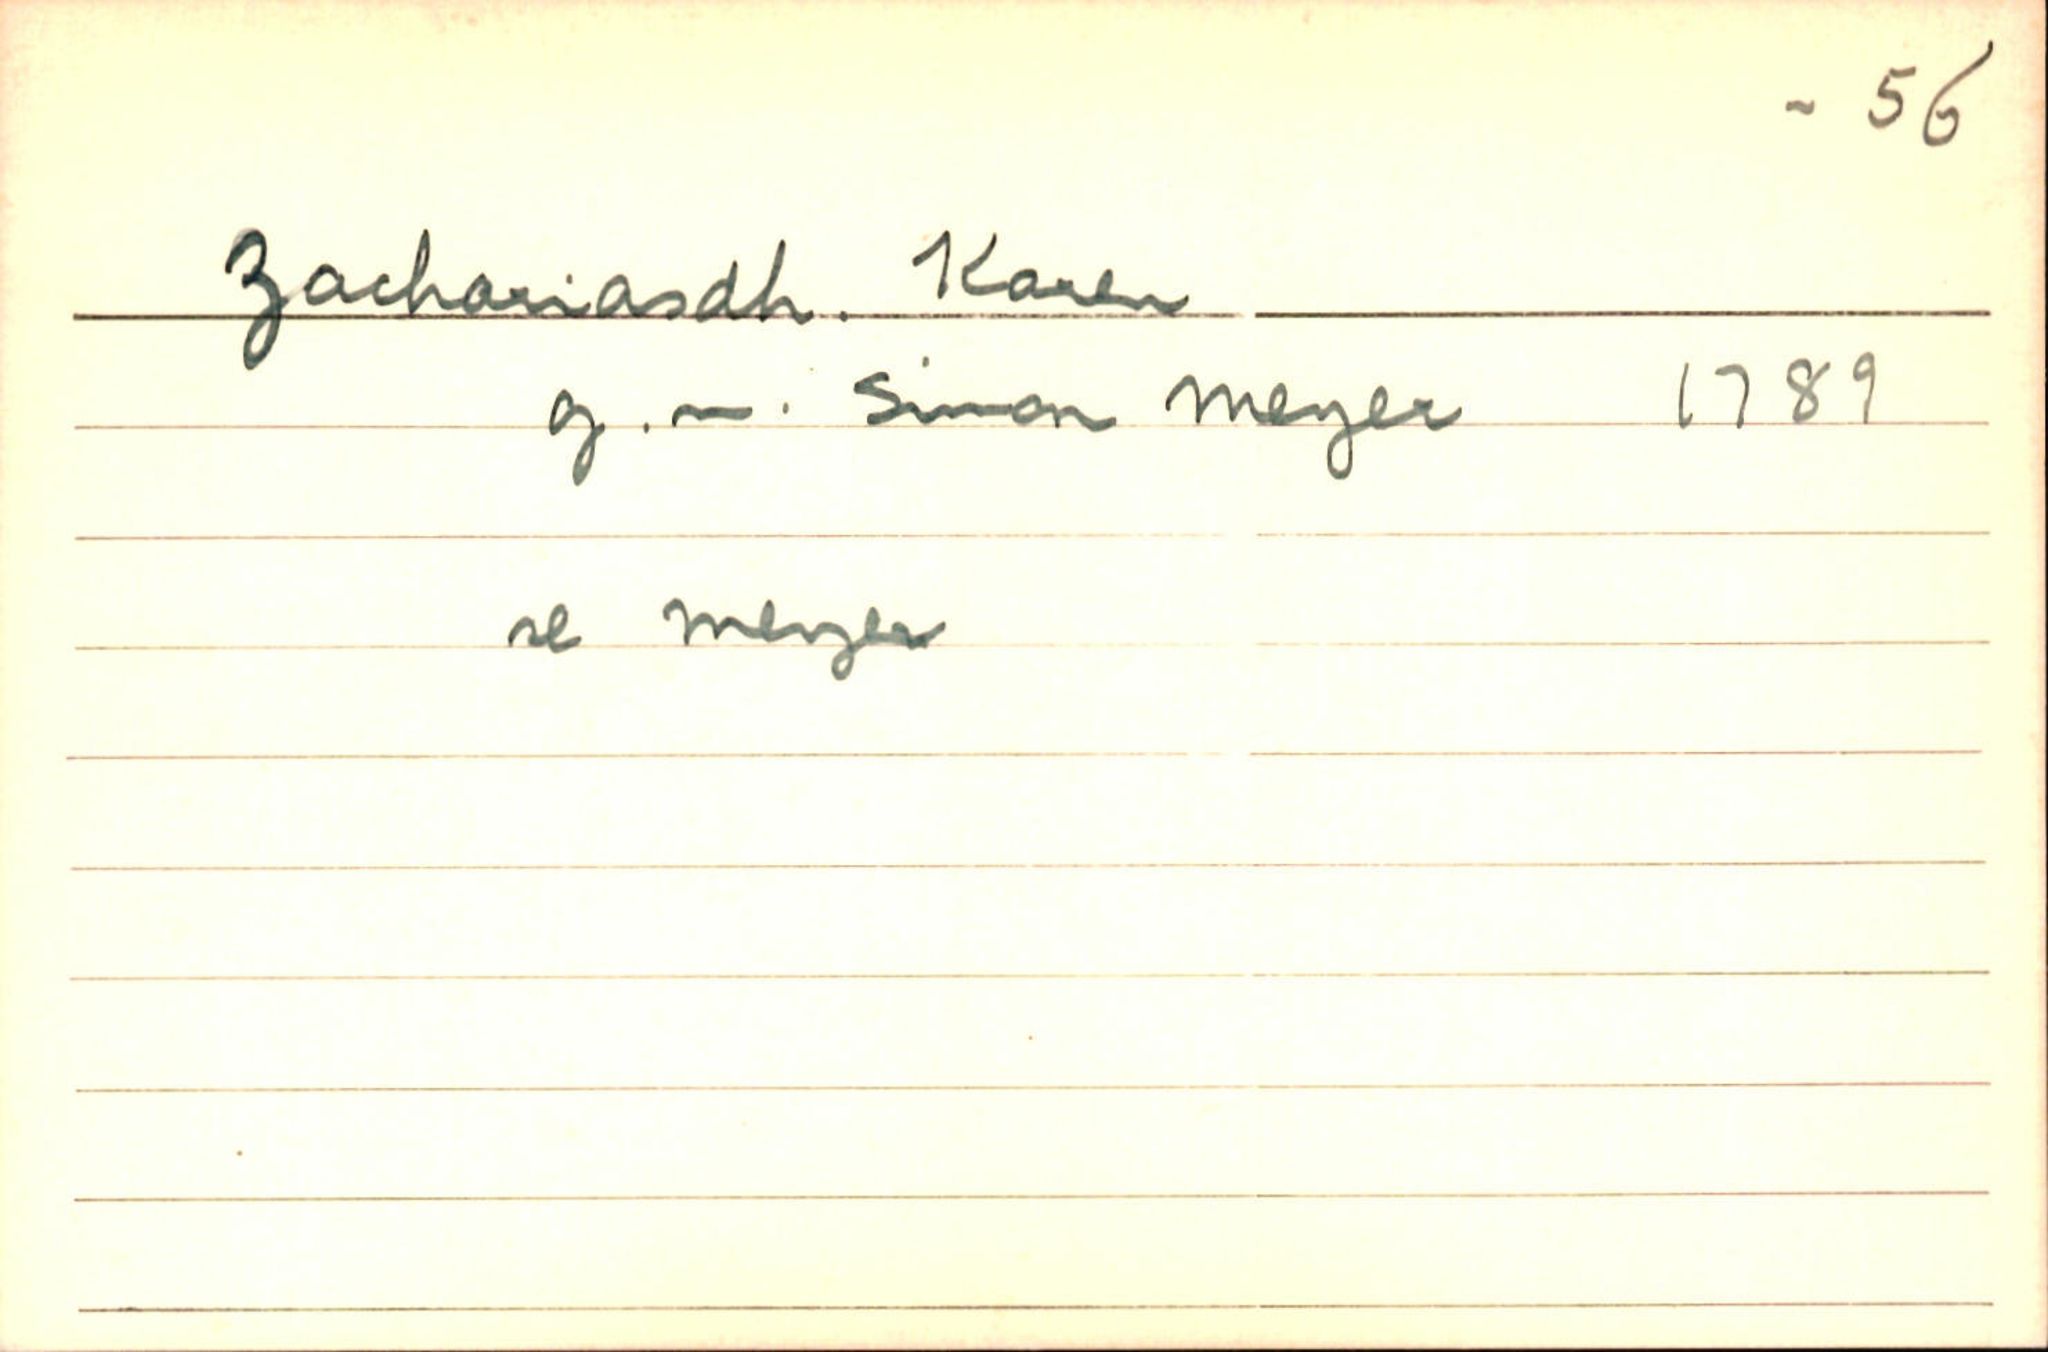 - 56
Zachariasdh. Karen
g.m. Simon Meyer 1789
se Meyer